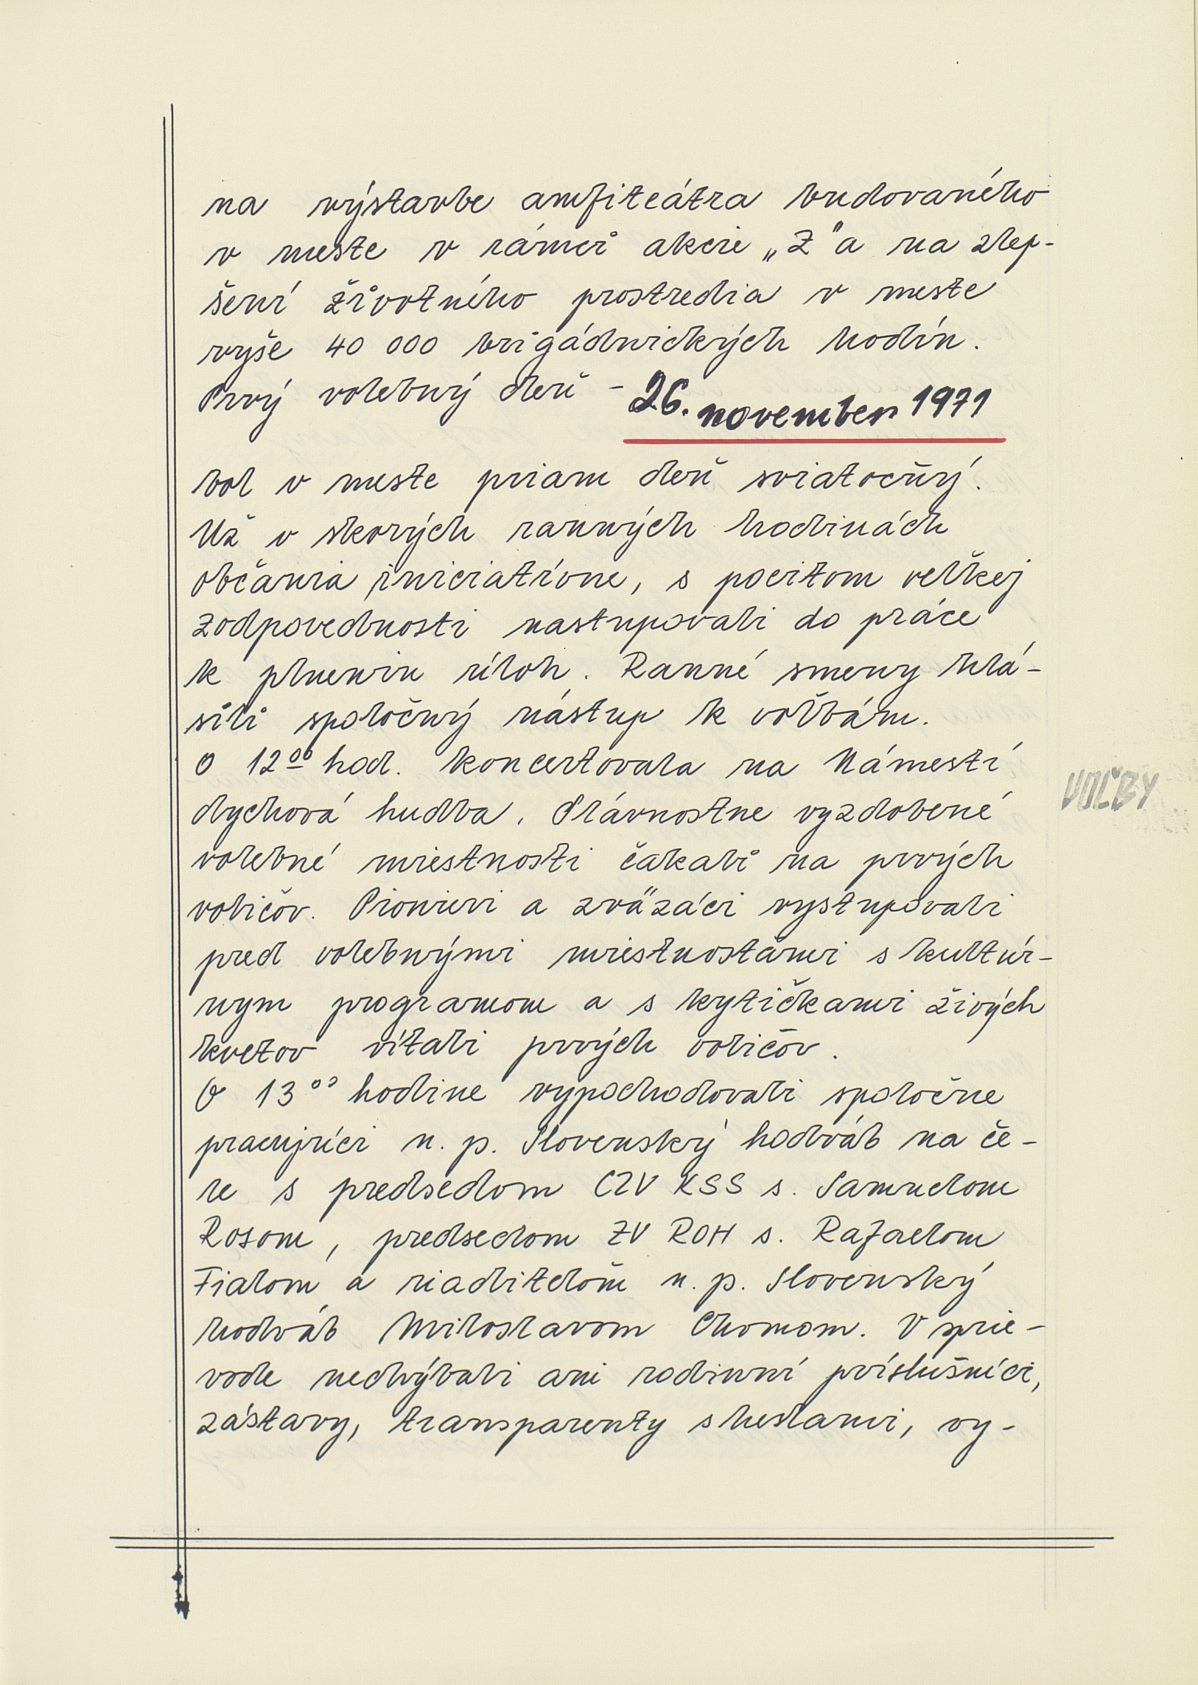 na výstavbe amfiteátra budovaného
v meste v rámci akcie „Z“ a na zlep-
šení životného prostredia v meste
vyše 40 000 brigádnických hodín.
Prvý volebný deň - 26. november 1971
bol v meste priam deň sviatočný.
Už v skorých ranných hodinách
občania iniciatívne, s pocitom veľkej
zodpovednosti nastupovali do práce
k plneniu úloh. Ranné smeny hlá-
sili spoločný nástup k voľbám.
O 12ºº hod. koncertovala na Námestí
dychová hudba. Slávnostne vyzdobené
volebné miestnosti čakali na prvých
voličov. Pionieri a zväzáci vystupovali
pred volebnými miestnosťami s kultúr-
nym programom a s kytičkami živých
kvetov vítali prvých voličov.
O 13ºº hodine vypochodovali spoločne
pracujúci n. p. Slovenský hodváb na če-
le s predsedom CZV KSS s. Samuelom
Rosom, predsedom ZV ROH s. Rafaelom
Fialom a riaditeľom n. p. Slovenský
hodváb Miloslavom Chomom. V sprie-
vode nechýbali ani rodinní príslušníci,
zástavy, transparenty s heslami, vy-
VOĽBY